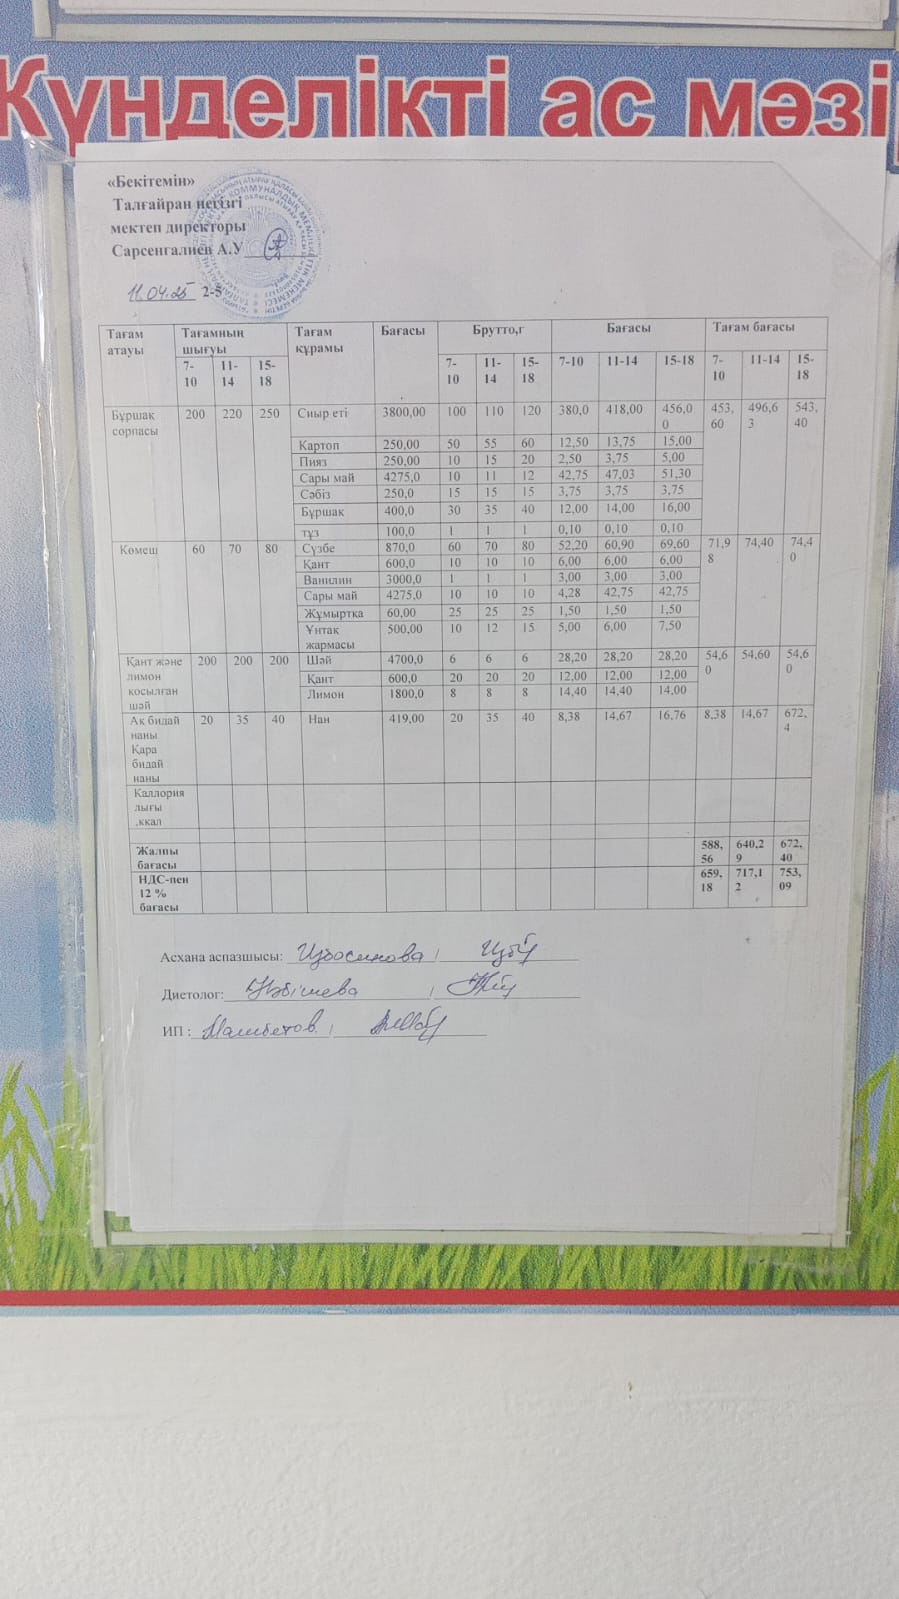 Күнделікті ас мәзі
«Бекітемін»
Талғайран негізгі
мектеп директоры
Сарсенгалиев А.У
11.04.25 2-5
Тағам атауы Тағамның шығуы Тағам құрамы Бағасы Брутто,г Бағасы Тағам бағасы
7-10 11-14 15-18 7-10 11-14 15-18 7-10 11-14 15-18 7-10 11-14 15-18
Бұршақ сорпасы 200 220 250 Сиыр еті 3800,00 100 110 120 380,0 418,00 456,00 453,60 496,63 543,40
Картоп 250,00 50 55 60 12,50 13,75 15,00
Пияз 250,00 10 15 20 2,50 3,75 5,00
Сары май 4275,0 10 11 12 42,75 47,03 51,30
Сәбіз 250,0 15 15 15 3,75 3,75 3,75
Бұршақ 400,0 30 35 40 12,00 14,00 16,00
тұз 100,0 1 1 1 0,10 0,10 0,10
Көмеш 60 70 80 Сүзбе 870,0 60 70 80 52,20 60,90 69,60 71,98 74,40 74,40
Қант 600,0 10 10 10 6,00 6,00 6,00
Ванилин 3000,0 1 1 1 3,00 3,00 3,00
Сары май 4275,0 10 10 10 4,28 42,75 42,75
Жұмыртка 60,00 25 25 25 1,50 1,50 1,50
Ұнтақ жармасы 500,00 10 12 15 5,00 6,00 7,50
Қант және лимон косылған шәй 200 200 200 Шәй 4700,0 6 6 6 28,20 28,20 28,20 54,60 54,60 54,60
Қант 600,0 20 20 20 12,00 12,00 12,00
Лимон 1800,0 8 8 8 14,40 14,40 14,00
Ақ бидай наны Қара бидай наны 20 35 40 Нан 419,00 20 35 40 8,38 14,67 16,76 8,38 14,67 672,4
Каллория лығы .ккал
Жалпы бағасы 588,56 640,29 672,40
НДС-пен 12 % бағасы 659,18 717,12 753,09
Асхана аспазшысы:
Диетолог:
ИП :